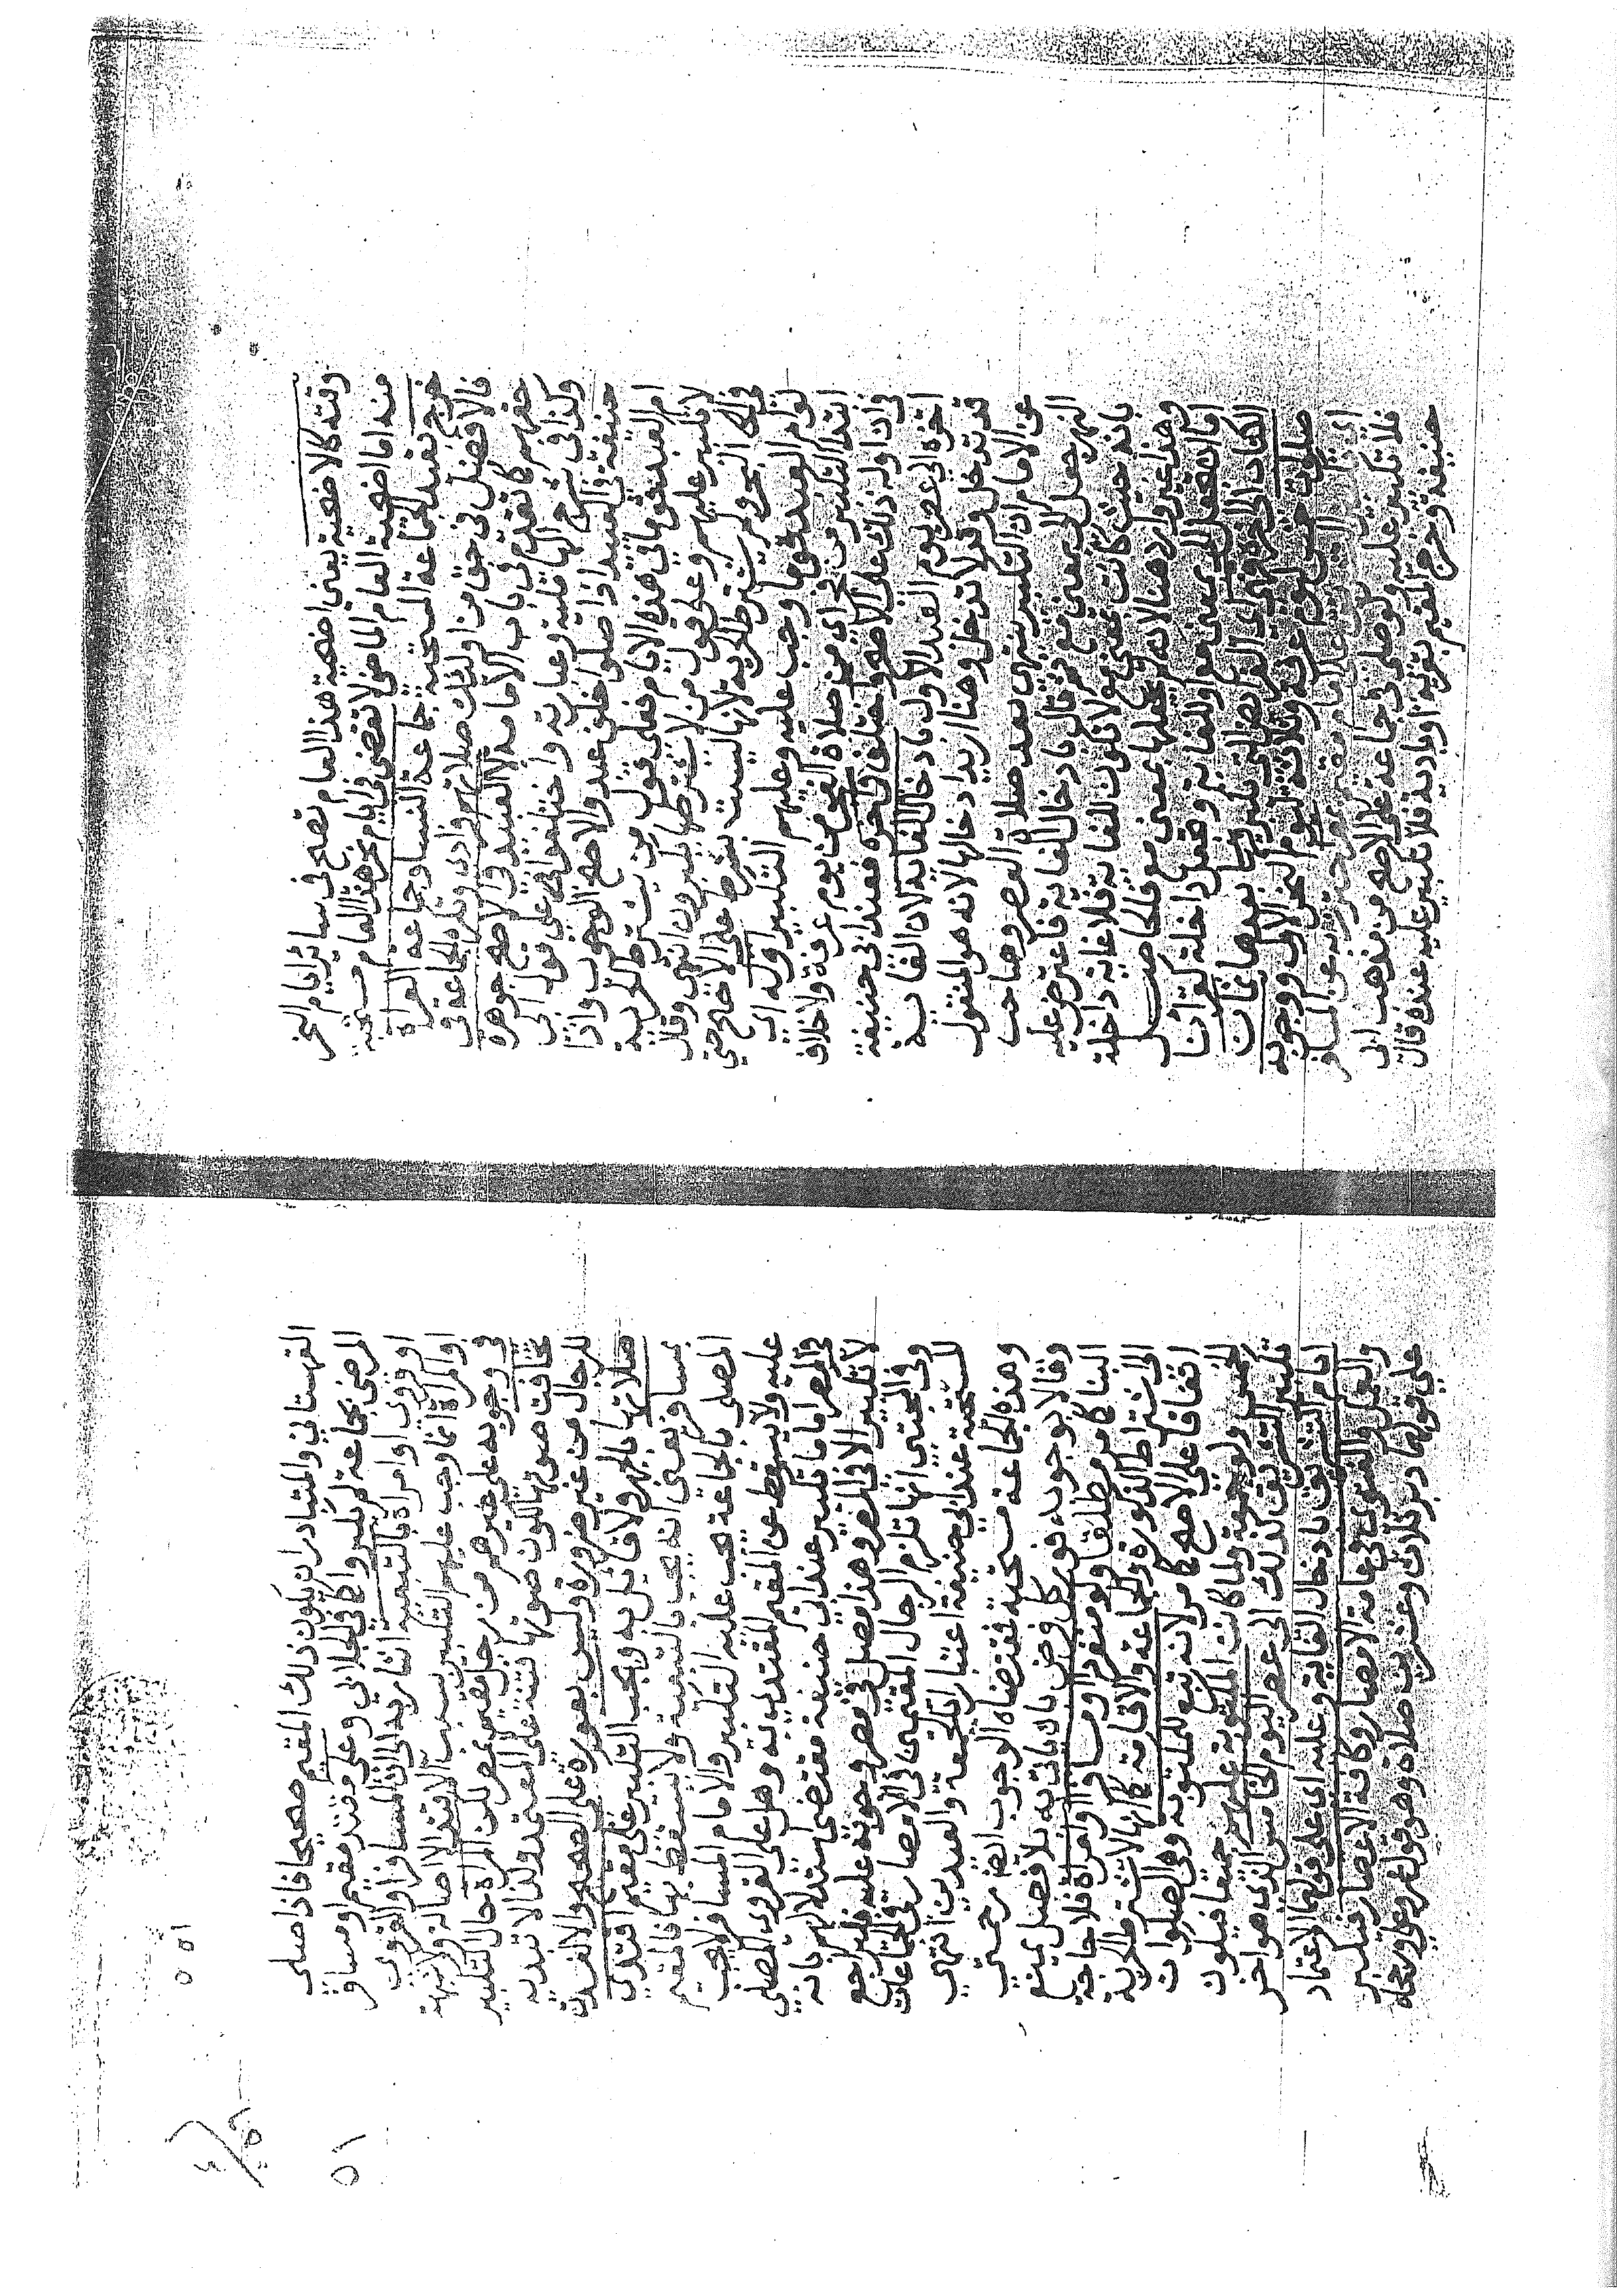 وقته كالاضحية يعنى اضحية هذا العام تصح فى سائر ايام النحر
منه اما اضحية العام الماضى لا تقضى فى ايام نحر هذا العام مستحبة
خرج تقييد الجماعة المستحبة جماعة النسا وجماعة العراة
فالافضل فى حق من اولئك صلاتهم فرادى وتكره الجماعة فى
حقهم كما تقدم فى باب الامامة لا العبيد فى الاصح جوهره
وكذا فى شرح الهاملية وعبارته واختلفوا فى على قول ابى
حنيفة فى العبيد اذا صلوا خلف عبد والاصح الوجوب واذا
ام العبد قوما فى هذه الايام فعلى قول من يشترط الحرية
لا تكبير عليهم وعلى قول من لا يشترطها يكبرون انتهى وقال
فى البحر ولم يشترط الحرية لانها ليست بشرط على الاصح حتى
لو ام العبد قوما وجب عليه وعليهم التكبير اوله اى
ابتدا التكبير من فجر اى من صلاة الفجر من يوم عرفة ولا خلاف
فى ان اوله ذلك على الاصح واختلف فى اخره فعند ابى حنيفة
اخره الى عصر يوم العيد الاول بادخال الغاية لان الغاية
قد تدخل وقد لا تدخل وهنا اريد ادخالها لانه هو المنقول
عن الامام ان التكبير ينتهى بعد صلاة العصر وصاحب
النهر جعل الى بمعنى مع ثم قال بادخال الغاية فاعترض عليه
بانه حيث كانت بمعنى مع لا تكون للغاية فلا غاية داخلة
وهذا غير وارد هنا لانه لم يجعلها بمعنى مع فالحاصل
اما ان تجعل الى بمعنى مع او للغاية وتجعل داخلة كقرأنا
الكتاب الى اخره فهى اى الفرائض التى تكبر فيها بعدها ثمان
صلوات خمس ليوم عرفة وثلاثة ليوم النحر الاول ووجوبه
اى تكبير على امام مقيم بمصر احترز به عن المسافر
فلا تكبير عليه ولو صلى فى جماعة على الاصح من مذهب ابى
حنيفة وخرج المقيم بقرية او بادية فلا تكبير عليه عنده قال
القهستانى والمتبادر ان يكون ذلك المقيم صحيحا فاذا صلى
المرضى بجماعة لم يكبروا كما فى الجلابى وعلى مقتد مقيم او مسافر
او قروى او امراة بالتبعية اشار به الى ان المسافر او القروى
او امراة انما وجب عليهم التكبير بسبب الاقتدا لا اصالة ولا شبهة
فى وجوبه على غيرهم من رجل مقيم بمصر لكن المراة حال التكبير
تخافت صوتها لكون صوتها فتنة على المعتمد ولذا لا تبديه
للرجال من غير ضرورة وليس بعورة على الصحيح والا لفسدت
صلاتها بالجهر ولا قائل به ويجب التكبير على مقيم اقتدى
بمسافر يعنى انه يجب بالتبعية ولا يسقط بها فالمقيم
المصلى بالجماعة يجب عليه التكبير والامام المسافر لا يجب
عليه ولا يسقط عن المقيم المقتدى به وهل على القروى المصلى
فى المصر اما ما تكبير عند ابى حنيفة مقتضى استدلالهم بانه
لا تكبير الا فى المصر وهذا مصل فى مصر وجوبه عليه فليراجع
وفى المجتبى انها تلزم الرجال المقيمين فى الامصار فى الجماعات
المستحبة عند ابى حنيفة اعتبارا بالجمعة والعيدين انتهى
وهذه الجماعة مستحبة فمقتضاه الوجوب ايضا رحمتى
وقالا بوجوبه فور كل فرض بان ياتى به بلا فصل يمنع
البنا كما مر مطلقا ولو منفردا او مسافرا او امراة فلا حاجة
الى اشتراط الذكورة والجماعة والاقامة كما انها لا تشترط الحرية
اتفاقا على الاصح كما مر لانه تبع للمكتوبة وهى الصلوات
الخمس ولو جمعة ولما كانت المكتوبة عليهم جميعا فيكون
تكبير التشريق كذلك الى عصر اليوم الخامس الذى هو اخر
ايام التشريق بادخال الغاية وعليه اى على قولهما الاعتماد
والعمل والفتوى فى عامة الامصار وكافة الاعصار فيكبر
على قولهما دبر ثلاث وعشرين صلاة وهو قول عمر وعلى ورجحاه
٥١